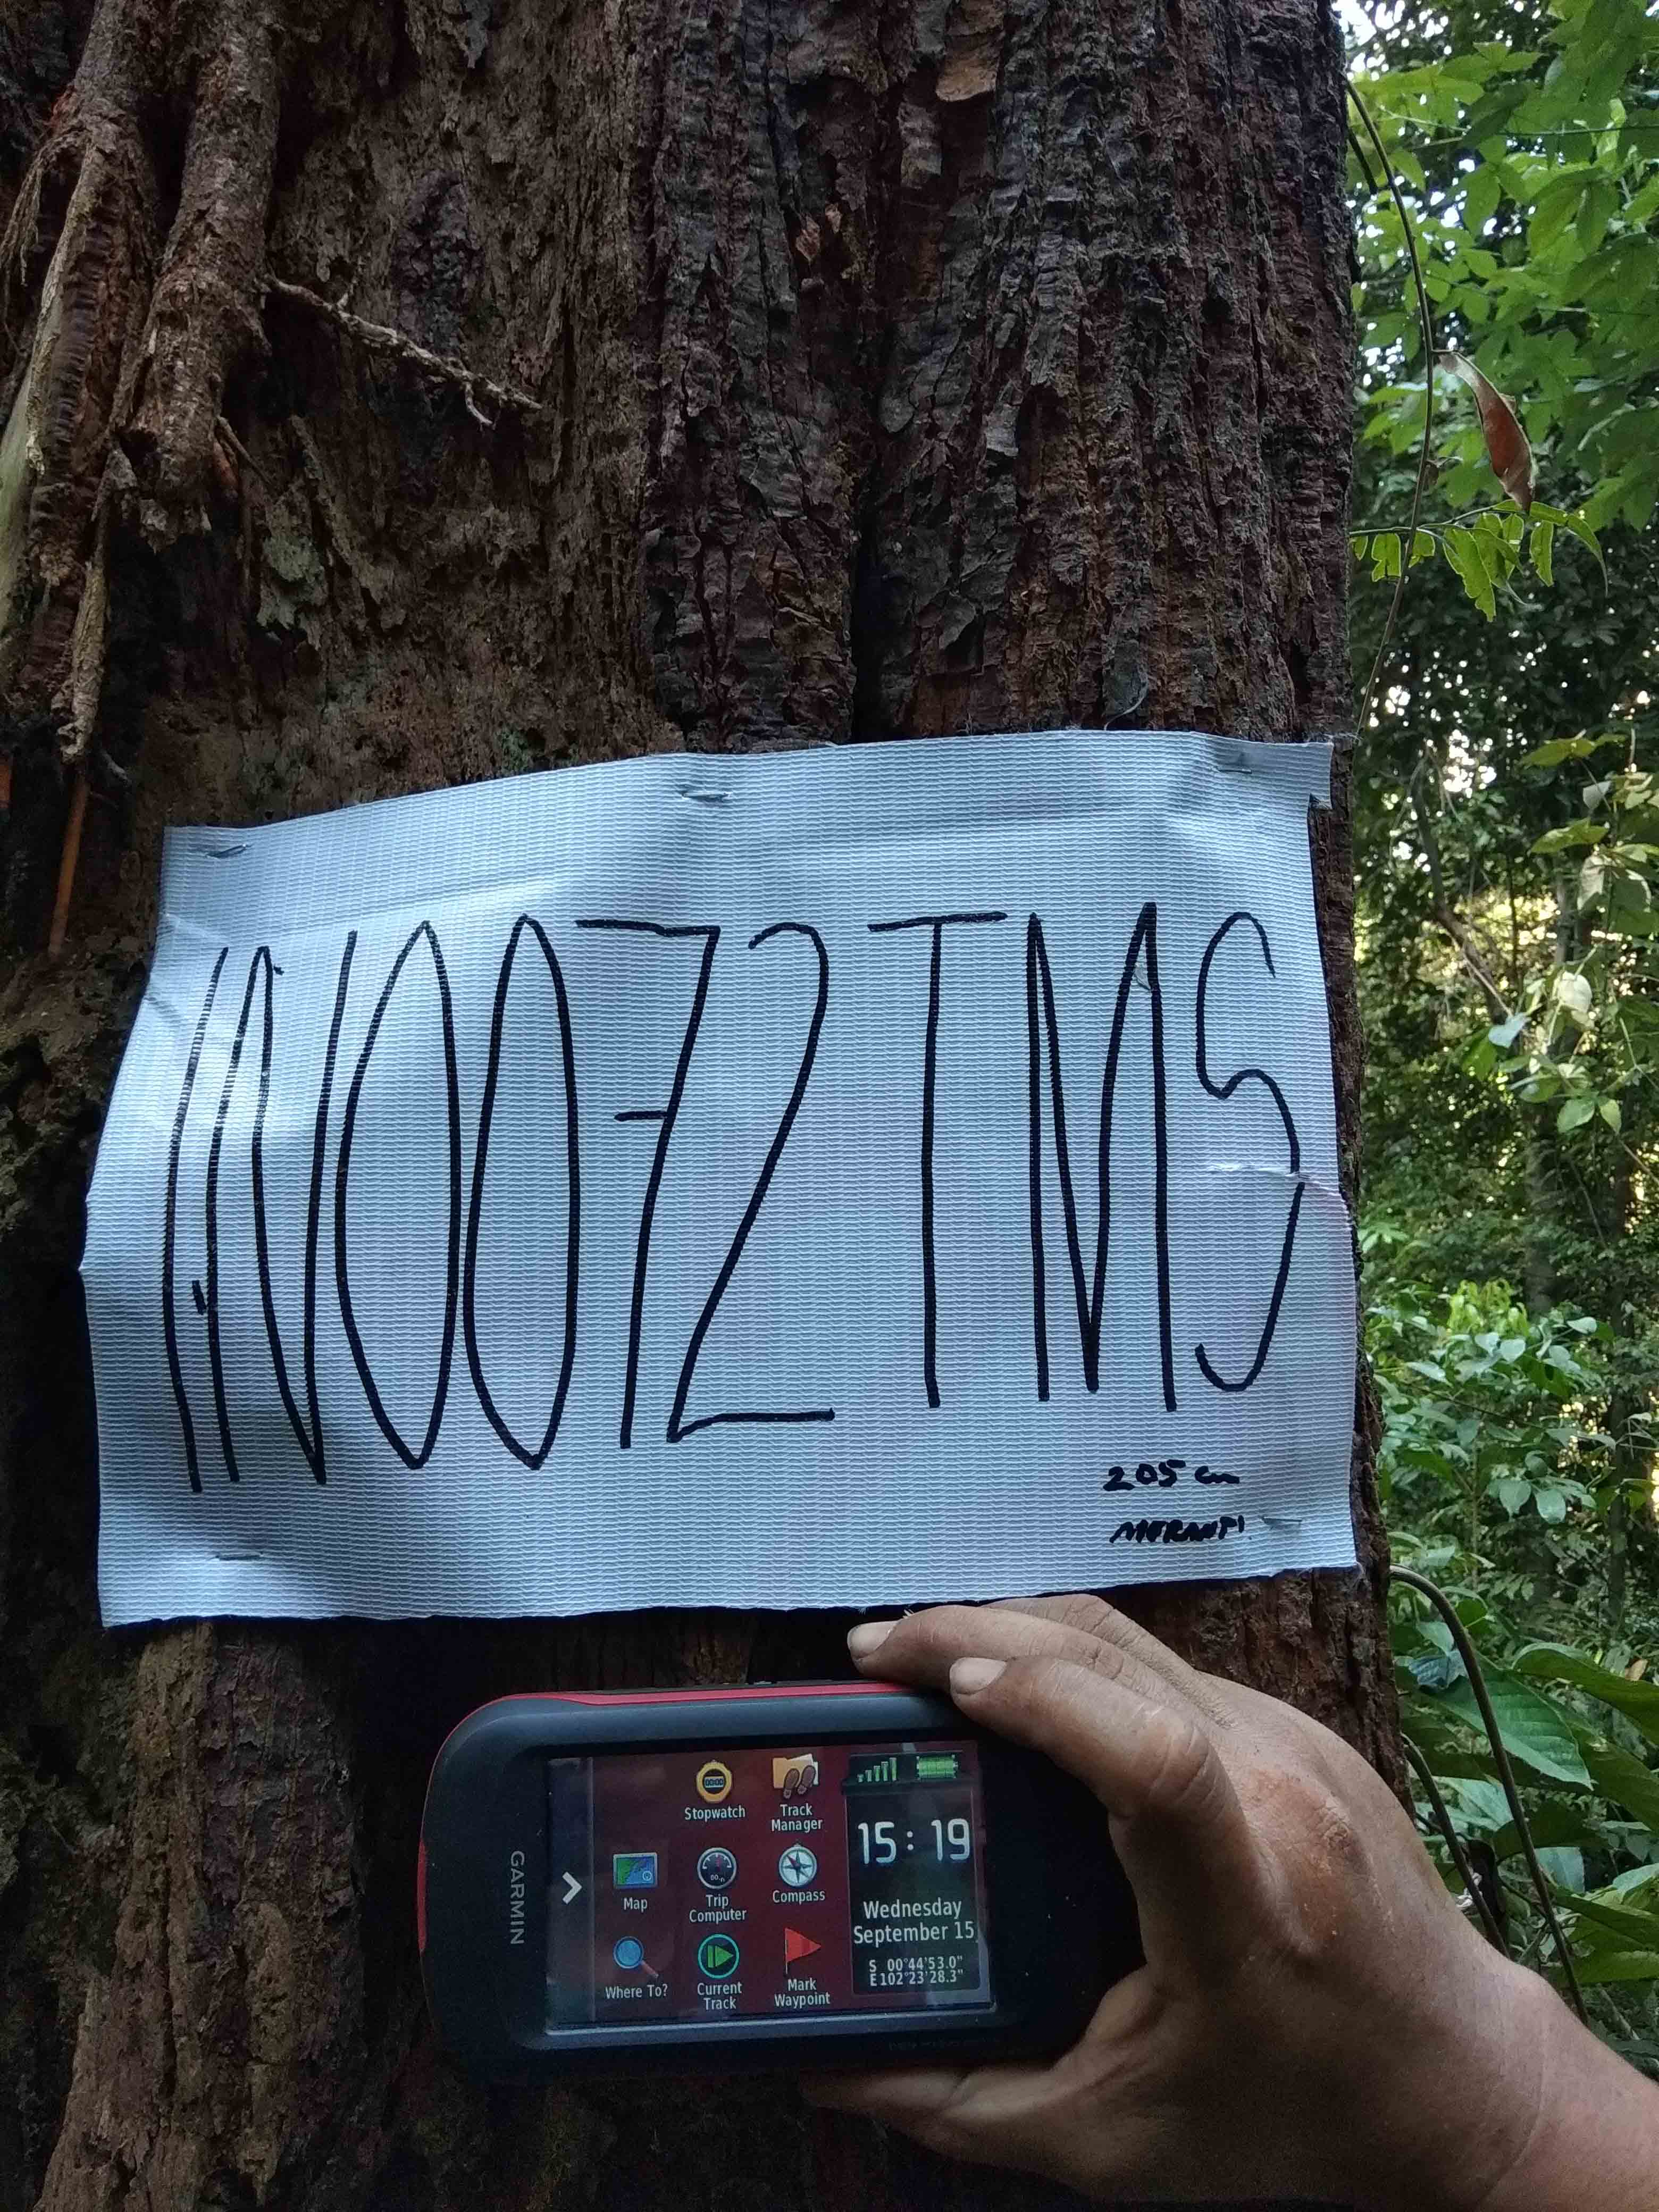 INO072TMS
205 cm
MERANTI
GARMIN
Stopwatch
Track Manager
Map
Trip Computer
Compass
Where To?
Current Track
Mark Waypoint
15:19
Wednesday
September 15
S 00°44'53.0"
E102°23'28.3"